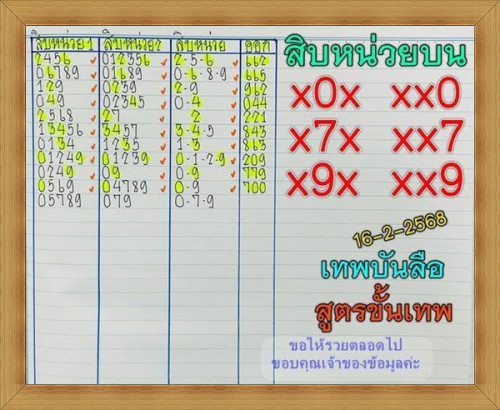 สิบหน่วย1 สิบหน่วย2 สิบหน่วย ออก
2456 012356 2-5-6 662
06789 01689 0-6-8-9 665
129 0239 2-9 962
049 02345 0-4 044
2568 27 2 221
13456 3457 3-4-5 843
0134 1235 1-3 863
01249 01239 0-1-2-9 209
0249 09 0-9 779
0569 04789 0-9 700
05789 079 0-7-9
สิบหน่วยบน
x0x xx0
x7x xx7
x9x xx9
16-2-2568
เทพบันลือ
สูตรขั้นเทพ
ขอให้รวยตลอดไป
ขอบคุณเจ้าของข้อมูลค่ะ